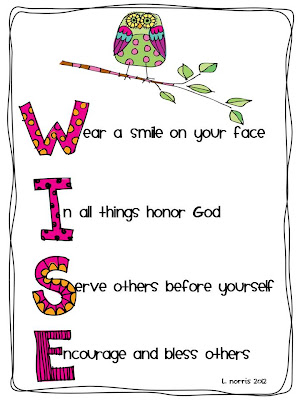 Wear a smile on your face
In all things honor God
Serve others before yourself
Encourage and bless others
L. norris 2012